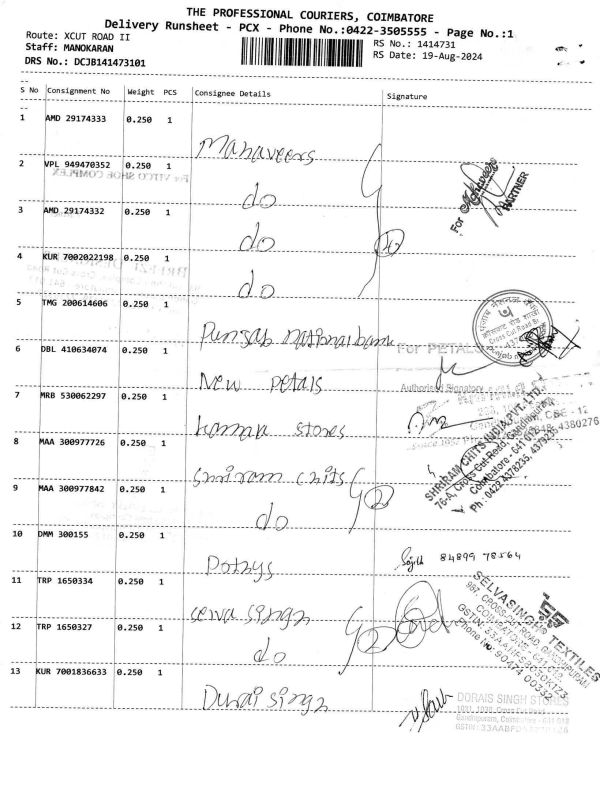 THE PROFESSIONAL COURIERS, COIMBATORE
Delivery Runsheet - PCX - Phone No.:0422-3505555 - Page No.:1
Route: XCUT ROAD II
RS No.: 1414731
Staff: MANOKARAN
RS Date: 19-Aug-2024
DRS No.: DCJB141473101
S No Consignment No Weight PCS Consignee Details Signature
1 AMD 29174333 0.250 1 Mahaveers
2 VPL 949470352 0.250 1 do
For VITCO SHOE COMPLEX
For Mahaveers
PARTNER
3 AMD 29174332 0.250 1 do
4 KUR 7002022198 0.250 1 do
4
5 TMG 200614606 0.250 1 Punjab national bank
Cross Cut Road Br
6 DBL 410634074 0.250 1 New petals
For PETALS
Authorised Signatory
7 MRB 530062297 0.250 1 stores
8 MAA 300977726 0.250 1 Shriram chits
9 MAA 300977842 0.250 1 do
2
SHRIRAM CHITS (INDIA) PVT. LTD.
76-A, Cross Cut Road, Gandhipuram,
Coimbatore - 641 012.
Ph : 0422 4378235, 4379235
10 DMM 300155 0.250 1 Pothys
84899 78564
11 TRP 1650334 0.250 1 sewa singh
12 TRP 1650327 0.250 1 do
2
SELVASINGH TEXTILES
987, CROSS CUT ROAD, GANDHIPURAM,
COIMBATORE - 641 012.
Phone No: 90474 00932
13 KUR 7001836633 0.250 1 Durai singh
DORAIS SINGH STORES
Cross Cut Road
Gandhipuram, Coimbatore - 641 012